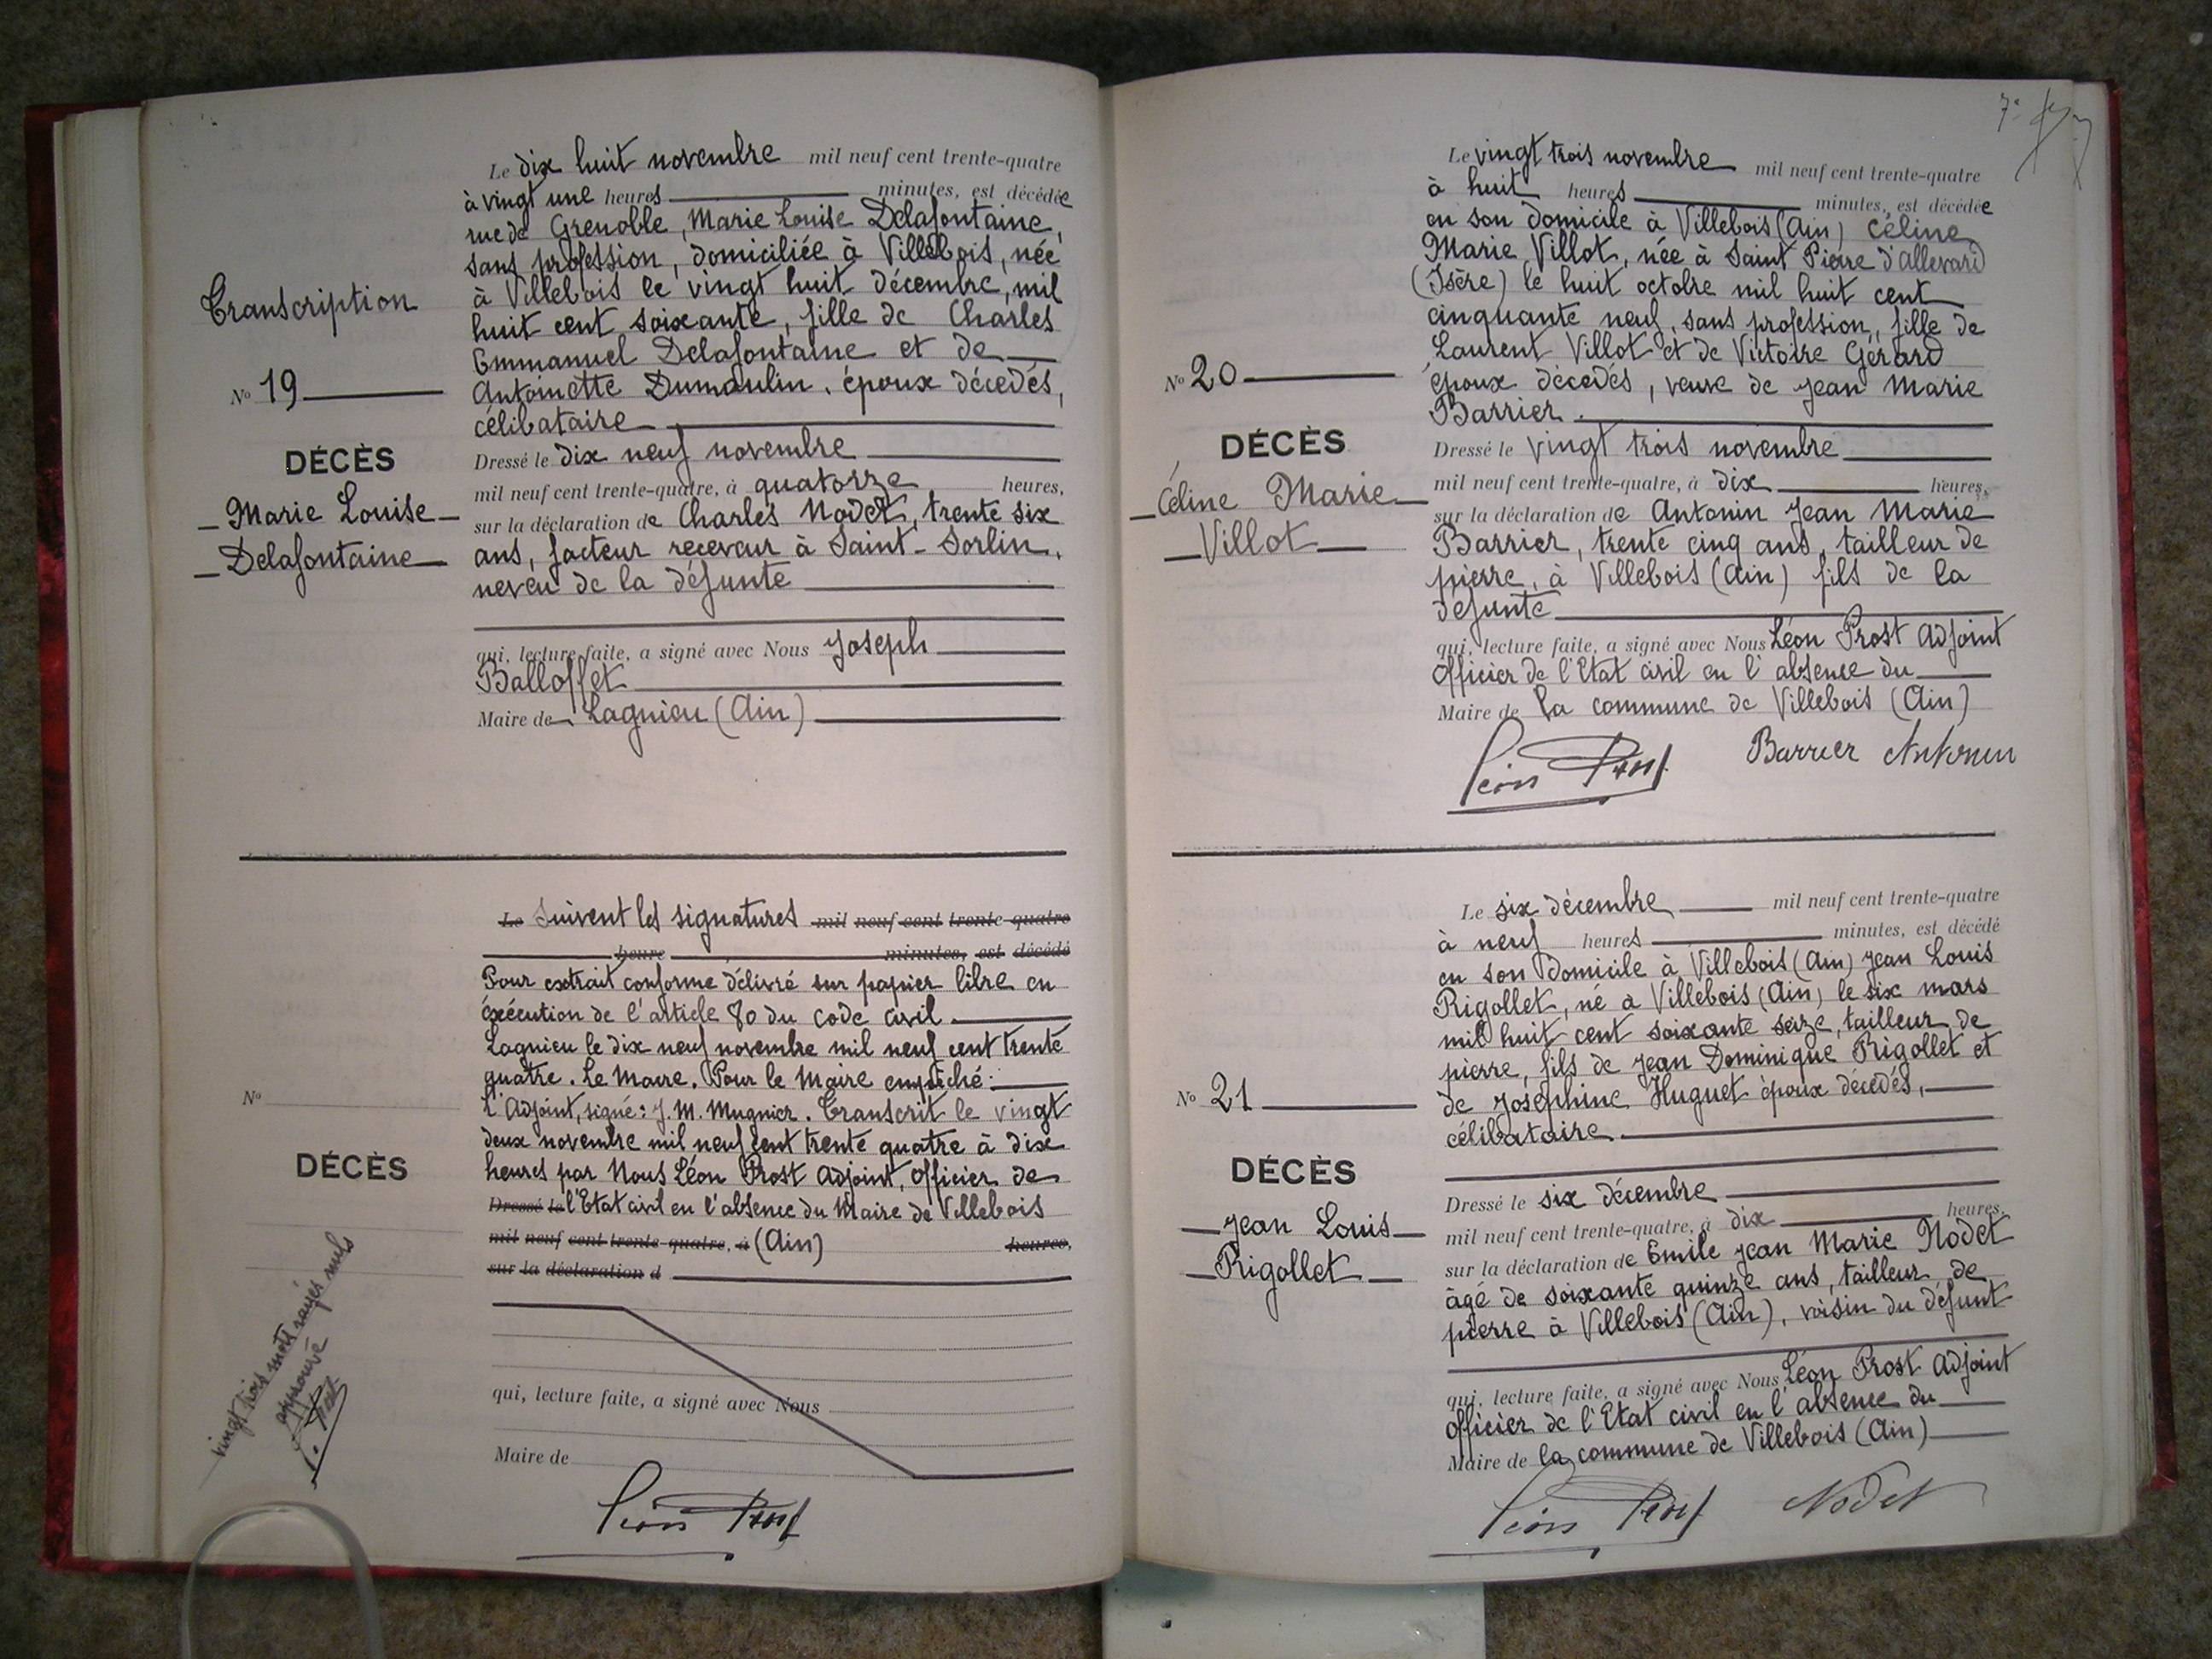 Transcription
N° 19
DÉCÈS
Marie Louise
Delafontaine
Le dix huit novembre mil neuf cent trente-quatre
à vingt une heures minutes, est décédée
rue de Grenoble, Marie Louise Delafontaine,
sans profession, domiciliée à Villebois, née
à Villebois le vingt huit décembre, mil
huit cent soixante, fille de Charles
Emmanuel Delafontaine et de
Antoinette Dumoulin, époux décedés,
célibataire
Dressé le dix neuf novembre
mil neuf cent trente-quatre, à quatorze heures,
sur la déclaration de Charles Nodet, trente six
ans, facteur receveur à Saint-Sorlin,
neveu de la défunte
qui, lecture faite, a signé avec Nous Joseph
Balloffet
Maire de Lagnieu (Ain)
N°
DÉCÈS
vingt trois mots rayés nuls
approuvé
L. Prost
Le Suivent les signatures mil neuf cent trente-quatre
heure minutes, est décédé
Pour extrait conforme délivré sur papier libre en
éxécution de l'article 80 du code civil.
Lagnieu le dix neuf novembre mil neuf cent trente
quatre. Le Maire. Pour le Maire empêché:
L'Adjoint, signé: J. M. Mugnier. Transcrit le vingt
deux novembre mil neuf cent trente quatre à dix
heures par Nous Léon Prost Adjoint, Officier de
Dressé le l'Etat civil en l'absence du Maire de Villebois
mil neuf cent trente-quatre, à (Ain) heures,
sur la déclaration d
qui, lecture faite, a signé avec Nous
Maire de
Léon Prost
7e
N° 20
DÉCÈS
Céline Marie
Villot
Le vingt trois novembre mil neuf cent trente-quatre
à huit heures minutes, est décédée
en son domicile à Villebois (Ain) Céline
Marie Villot, née à Saint Pierre d'Allevard
(Isère) le huit octobre mil huit cent
cinquante neuf, sans profession, fille de
Laurent Villot et de Victoire Gérard
époux décedés, veuve de Jean Marie
Barrier.
Dressé le vingt trois novembre
mil neuf cent trente-quatre, à dix heures,
sur la déclaration de Antonin Jean Marie
Barrier, trente cinq ans, tailleur de
pierre, à Villebois (Ain) fils de la
defunte
qui, lecture faite, a signé avec Nous Léon Prost Adjoint
Officier de l'Etat civil en l'absence du
Maire de la commune de Villebois (Ain)
Léon Prost Barrier Antonin
N° 21
DÉCÈS
Jean Louis
Rigollet
Le six décembre mil neuf cent trente-quatre
à neuf heures minutes, est décédé
en son domicile à Villebois (Ain) Jean Louis
Rigollet, né à Villebois (Ain) le six mars
mil huit cent soixante seize, tailleur de
pierre, fils de Jean Dominique Rigollet et
de Joséphine Huguet époux décedés,
célibataire
Dressé le six décembre
mil neuf cent trente-quatre, à dix heures,
sur la déclaration de Emile Jean Marie Nodet
âgé de soixante quinze ans, tailleur de
pierre à Villebois (Ain), voisin du défunt
qui, lecture faite, a signé avec Nous Léon Prost Adjoint
Officier de l'Etat civil en l'absence du
Maire de la commune de Villebois (Ain)
Léon Prost Nodet